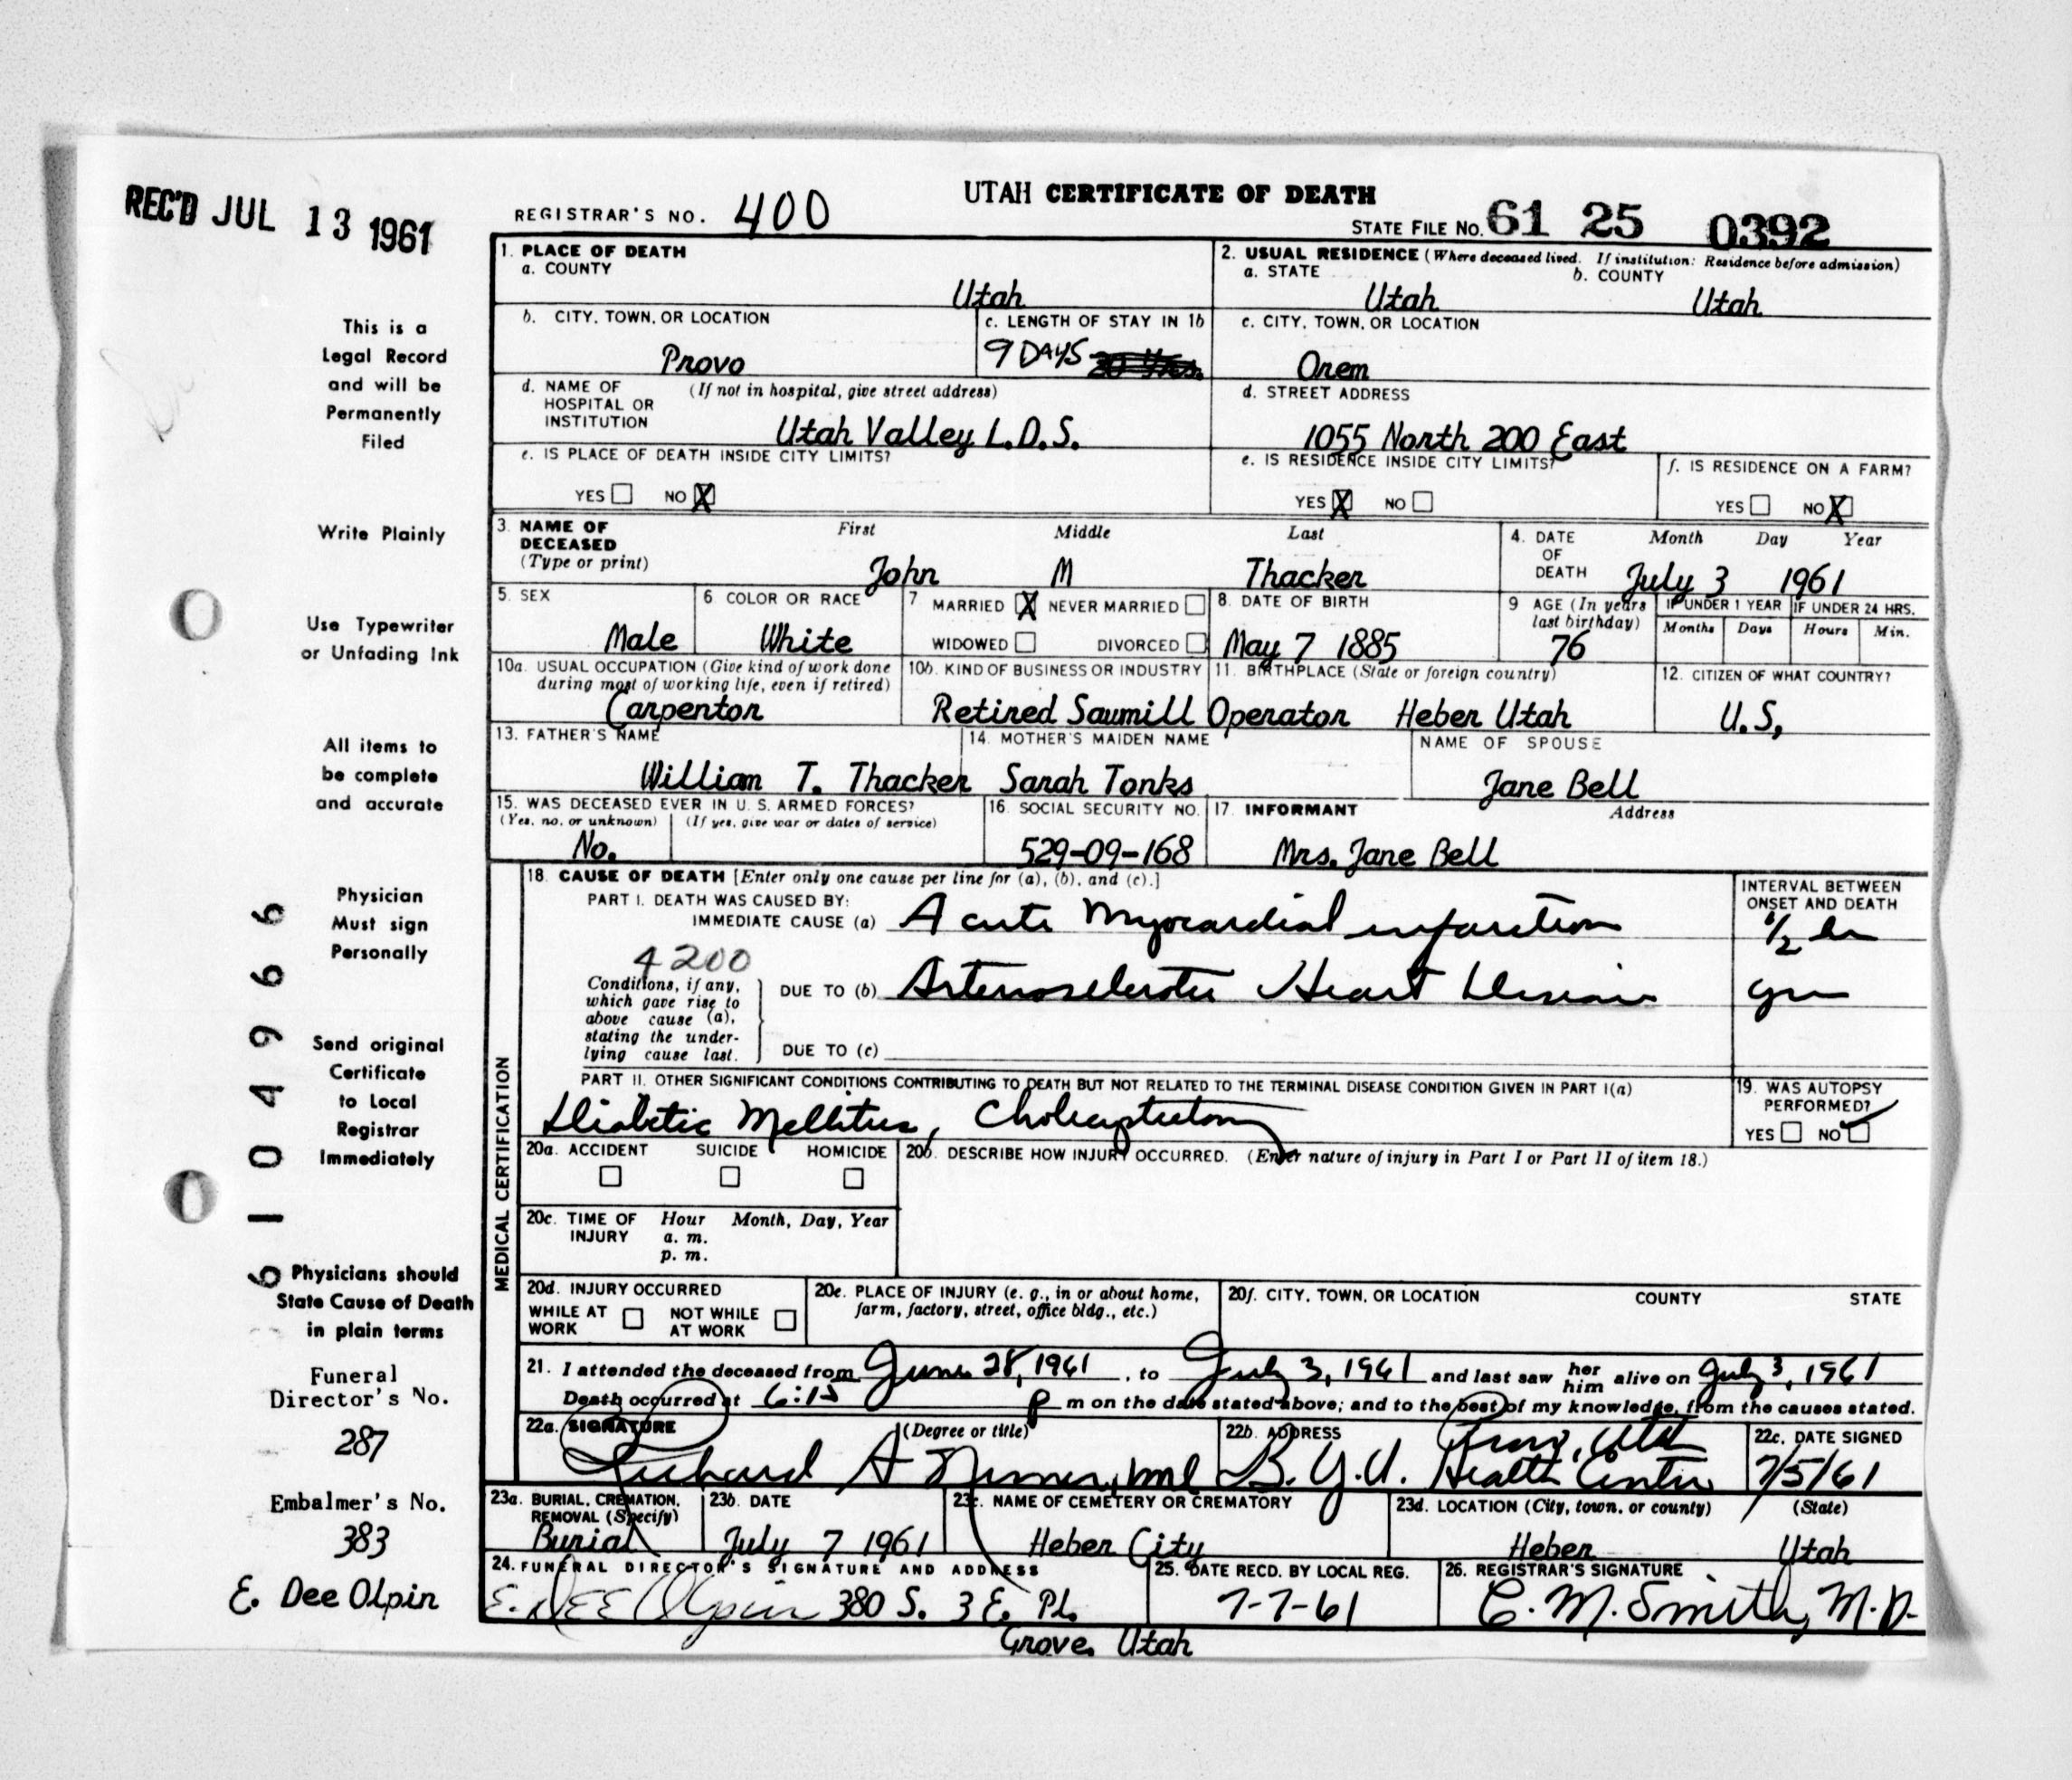 REC'D JUL 13 1961
UTAH CERTIFICATE OF DEATH
REGISTRAR'S NO. 400
STATE FILE NO. 61 25 0392
This is a
Legal Record
and will be
Permanently
Filed
Write Plainly
Use Typewriter
or Unfading Ink
All items to
be complete
and accurate
Physician
Must sign
Personally
Send original
Certificate
to Local
Registrar
Immediately
Physicians should
State Cause of Death
in plain terms
Funeral
Director's No.
287
Embalmer's No.
383
E. Dee Olpin
6 1049966
1. PLACE OF DEATH
a. COUNTY
Utah
2. USUAL RESIDENCE (Where deceased lived. If institution: Residence before admission)
a. STATE b. COUNTY
Utah Utah
b. CITY, TOWN, OR LOCATION
Provo
c. LENGTH OF STAY IN 1b
9 DAYS 20 Yrs.
c. CITY, TOWN, OR LOCATION
Orem
d. NAME OF (If not in hospital, give street address)
HOSPITAL OR
INSTITUTION
Utah Valley L.D.S.
d. STREET ADDRESS
1055 North 200 East
e. IS PLACE OF DEATH INSIDE CITY LIMITS?
YES NO X
e. IS RESIDENCE INSIDE CITY LIMITS?
YES X NO
f. IS RESIDENCE ON A FARM?
YES NO X
3. NAME OF First Middle Last
DECEASED
(Type or print)
John M Thacker
4. DATE Month Day Year
OF
DEATH
July 3 1961
5. SEX
Male
6. COLOR OR RACE
White
7 MARRIED X NEVER MARRIED
WIDOWED DIVORCED
8. DATE OF BIRTH
May 7 1885
9 AGE (In years
last birthday)
76
IF UNDER 1 YEAR IF UNDER 24 HRS.
Months Days Hours Min.
10a. USUAL OCCUPATION (Give kind of work done
during most of working life, even if retired)
Carpentor
10b. KIND OF BUSINESS OR INDUSTRY
Retired Sawmill Operator
11. BIRTHPLACE (State or foreign country)
Heber Utah
12. CITIZEN OF WHAT COUNTRY?
U.S,
13. FATHER'S NAME
William T. Thacker
14. MOTHER'S MAIDEN NAME
Sarah Tonks
NAME OF SPOUSE
Jane Bell
15. WAS DECEASED EVER IN U. S. ARMED FORCES?
(Yes, no, or unknown) (If yes, give war or dates of service)
No.
16. SOCIAL SECURITY NO.
529-09-168
17. INFORMANT Address
Mrs. Jane Bell
MEDICAL CERTIFICATION
18. CAUSE OF DEATH [Enter only one cause per line for (a), (b), and (c).]
INTERVAL BETWEEN
ONSET AND DEATH
PART I. DEATH WAS CAUSED BY:
IMMEDIATE CAUSE (a) Acute Myocardial infarction 1/2 hr
4200
Conditions, if any,
which gave rise to
above cause (a),
stating the under-
lying cause last.
DUE TO (b) Arteriosclerotic Heart Disease yrs
DUE TO (c)
PART II. OTHER SIGNIFICANT CONDITIONS CONTRIBUTING TO DEATH BUT NOT RELATED TO THE TERMINAL DISEASE CONDITION GIVEN IN PART I(a)
Diabetic Mellitus, Cholecystectomy
19. WAS AUTOPSY
PERFORMED?
YES NO
20a. ACCIDENT SUICIDE HOMICIDE
20b. DESCRIBE HOW INJURY OCCURRED. (Enter nature of injury in Part I or Part II of item 18.)
20c. TIME OF Hour Month, Day, Year
INJURY a. m.
p. m.
20d. INJURY OCCURRED
WHILE AT NOT WHILE
WORK AT WORK
20e. PLACE OF INJURY (e. g., in or about home,
farm, factory, street, office bldg., etc.)
20f. CITY, TOWN, OR LOCATION COUNTY STATE
21. I attended the deceased from June 28, 1961, to July 3, 1961 and last saw her him alive on July 3, 1961
Death occurred at 6:15 p m on the date stated above; and to the best of my knowledge, from the causes stated.
22a. SIGNATURE (Degree or title)
Richard A
22b. ADDRESS
Provo, Utah
B.Y.U. Health Center
22c. DATE SIGNED
7/5/61
23a. BURIAL, CREMATION,
REMOVAL (Specify)
Burial
23b. DATE
July 7 1961
23c. NAME OF CEMETERY OR CREMATORY
Heber City
23d. LOCATION (City, town, or county) (State)
Heber Utah
24. FUNERAL DIRECTOR'S SIGNATURE AND ADDRESS
E. DEE Olpin 380 S. 3 E. Pl.
Grove, Utah
25. DATE RECD. BY LOCAL REG.
7-7-61
26. REGISTRAR'S SIGNATURE
C. M. Smith, M.D.